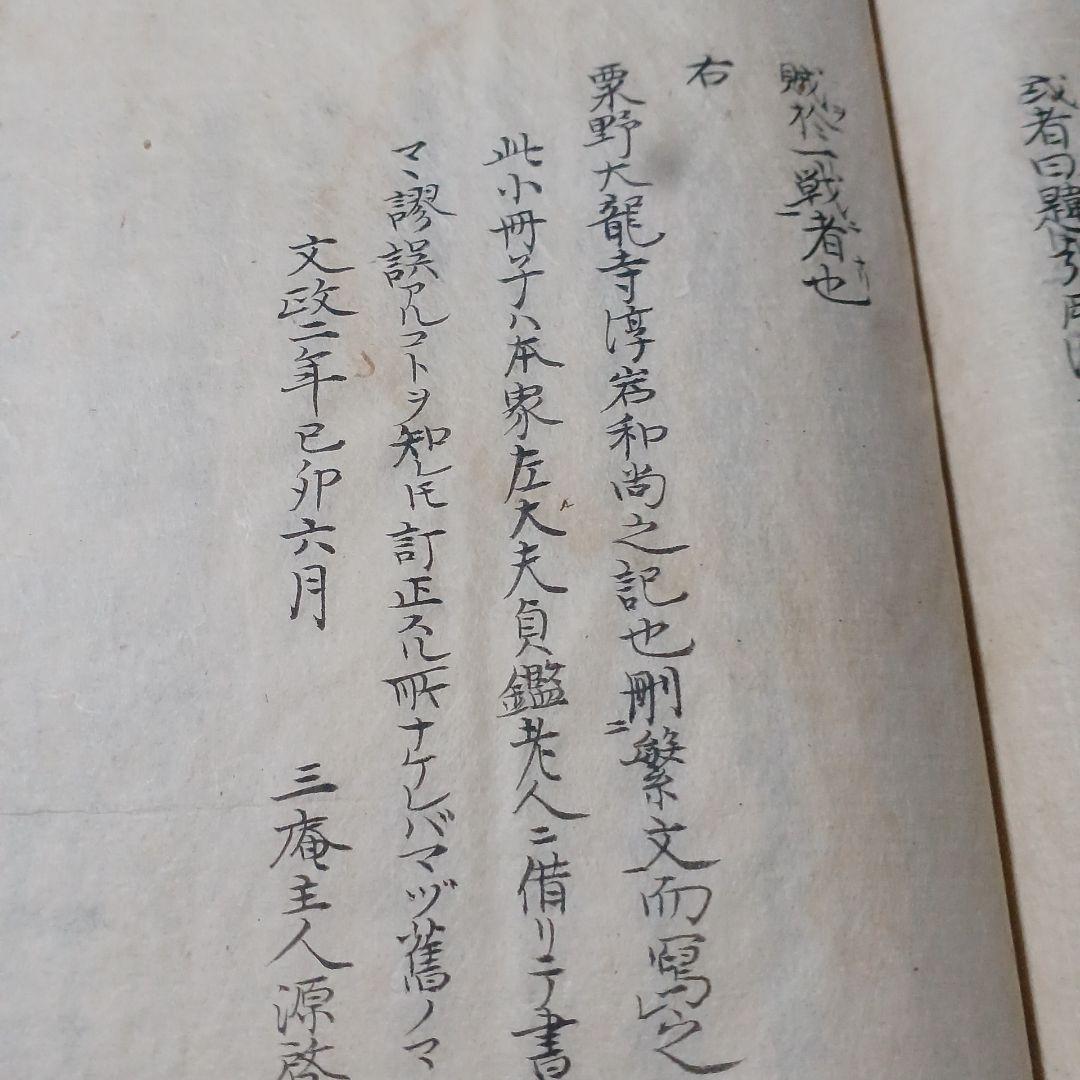 或者曰題
賊修一戦者也
右
粟野大龍寺淳岩和尚之記也刪繁文而寫之
此小冊子ハ本家左大夫貞鑑老人ニ借リテ書
マヽ謬誤アルコトヲ知レ𪜈訂正スル所ナケレバマヅ舊ノマ
文政二年己卯六月 三庵主人源啓